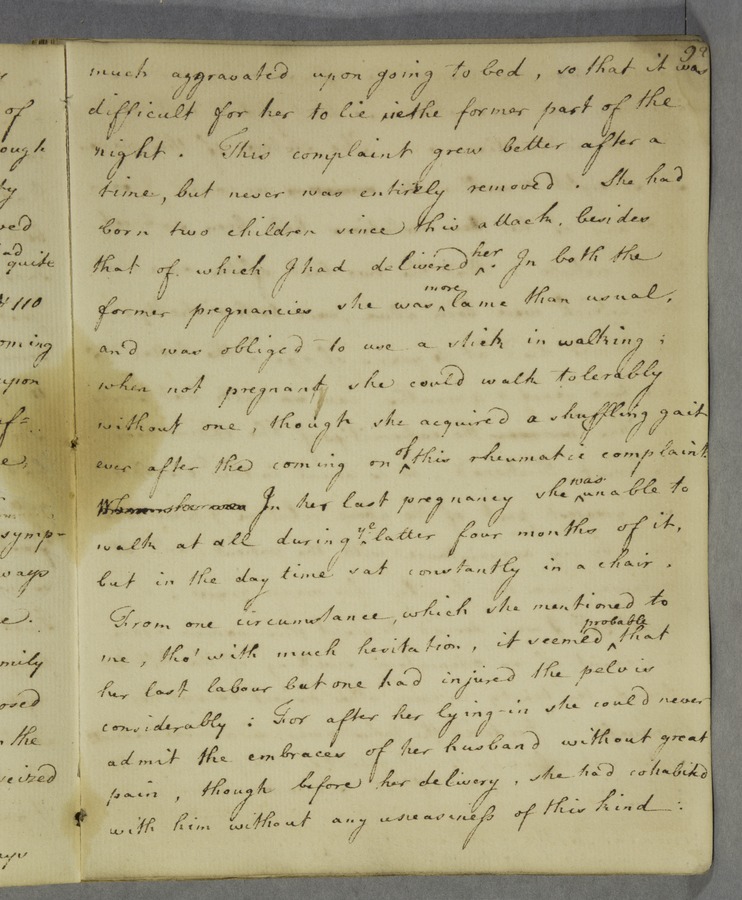 of
ough
ty
ved
had
quite
# 110
oming
upon
af=
e,
symp-
ways
e.
mily
osed
n the
seized
ays
much aggravated upon going to bed, so that it was
difficult for her to lie in the former part of the
night. This complaint grew better after a
time, but never was entirely removed. She had
born two children since this attack, besides
that of which I had delivered her. In both the
former pregnancies she was more lame than usual,
and was obliged to use a stick in walking;
when not pregnant, she could walk tolerably
without one, though she acquired a shuffling gait
ever after the coming on of this rheumatic complaint.
In her last pregnancy she was unable to
walk at all during ye latter four months of it,
but in the day time sat constantly in a chair.
From one circumstance, which she mentioned to
me, tho' with much hesitation, it seemed probable that
her last labour but one had injured the pelvis
considerably: For after her lying-in she could never
admit the embraces of her husband without great
pain, though before her delivery, she had cohabited
with him without any uneasiness of this kind: